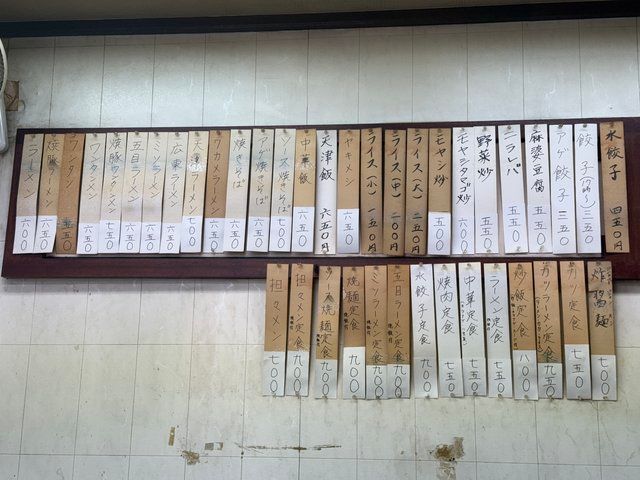 水餃子 四五〇円
餃子 三五〇
アゲ餃子 三五〇
麻婆豆腐 五五〇
ニラレバ 五五〇
野菜炒 五五〇
モヤシタマゴ炒 六〇〇
モヤシ炒 五五〇
ライス(大) 二五〇円
ライス(中) 二〇〇円
ライス(小) 一五〇円
ヤキメシ 六五〇
天津飯 六五〇円
中華飯 六五〇
ソース焼きそば 七〇〇
焼きそば 六五〇
ワカメラーメン 六五〇
天津ラーメン 七〇〇
広東ラーメン 六五〇
ミソラーメン 六五〇
五目ラーメン 六五〇
焼豚ワンタンメン 七〇〇
ワンタンメン 六五〇
ワンタン 五五〇
焼豚ラーメン 六五〇
ラーメン 六〇〇
炸醤麺 七五〇
カツ定食 七五〇
カツラーメン定食 九五〇
炒飯定食 八〇〇
ラーメン定食 七五〇
中華定食 七五〇
焼肉定食 七五〇
水餃子定食 九〇〇
五目ラーメン定食 九〇〇
ミソラーメン定食 九〇〇
焼麺定食 九〇〇
ソース焼麺定食 九〇〇
担々メン定食 九〇〇
担々メン 七〇〇